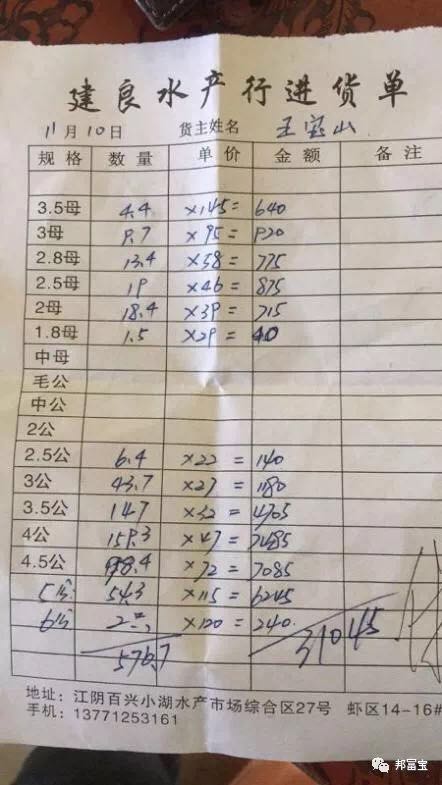 建良水产行进货单
11月10日 货主姓名 王宝山
规格 数量 单价 金额 备注
3.5母 4.4 ×145= 640
3母 9.7 ×95= 920
2.8母 13.4 ×58= 775
2.5母 19 ×46= 875
2母 18.4 ×39= 715
1.8母 1.5 ×29= 40
中母
毛公
中公
2公
2.5公 6.4 ×22= 140
3公 43.7 ×27= 1180
3.5公 147 ×32= 4705
4公 159.3 ×47= 7485
4.5公 98.4 ×72= 7085
5公 54.3 ×115= 6245
6公 2只 ×120= 240
576.7 31045
地址:江阴百兴小湖水产市场综合区27号 虾区14-16#
手机:13771253161
邦富宝